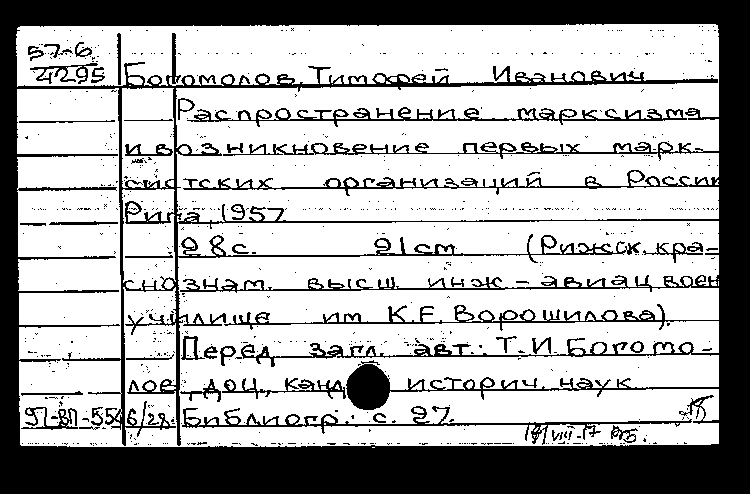 57-6
4295 Богомолов, Тимофей Иванович
Распространение марксизма
и возникновение первых марк-
систских организаций в России
Рига, 1957
28 с. 21 см. (Рижск. кра-
снознам. высш. инж-авиац воен
училище им К.Е. Ворошилова).
Перед загл. авт.: Т.И. Богомо-
лов, доц., канд историч. наук
97-ВП-554 6/28. Библиогр.: с. 27.